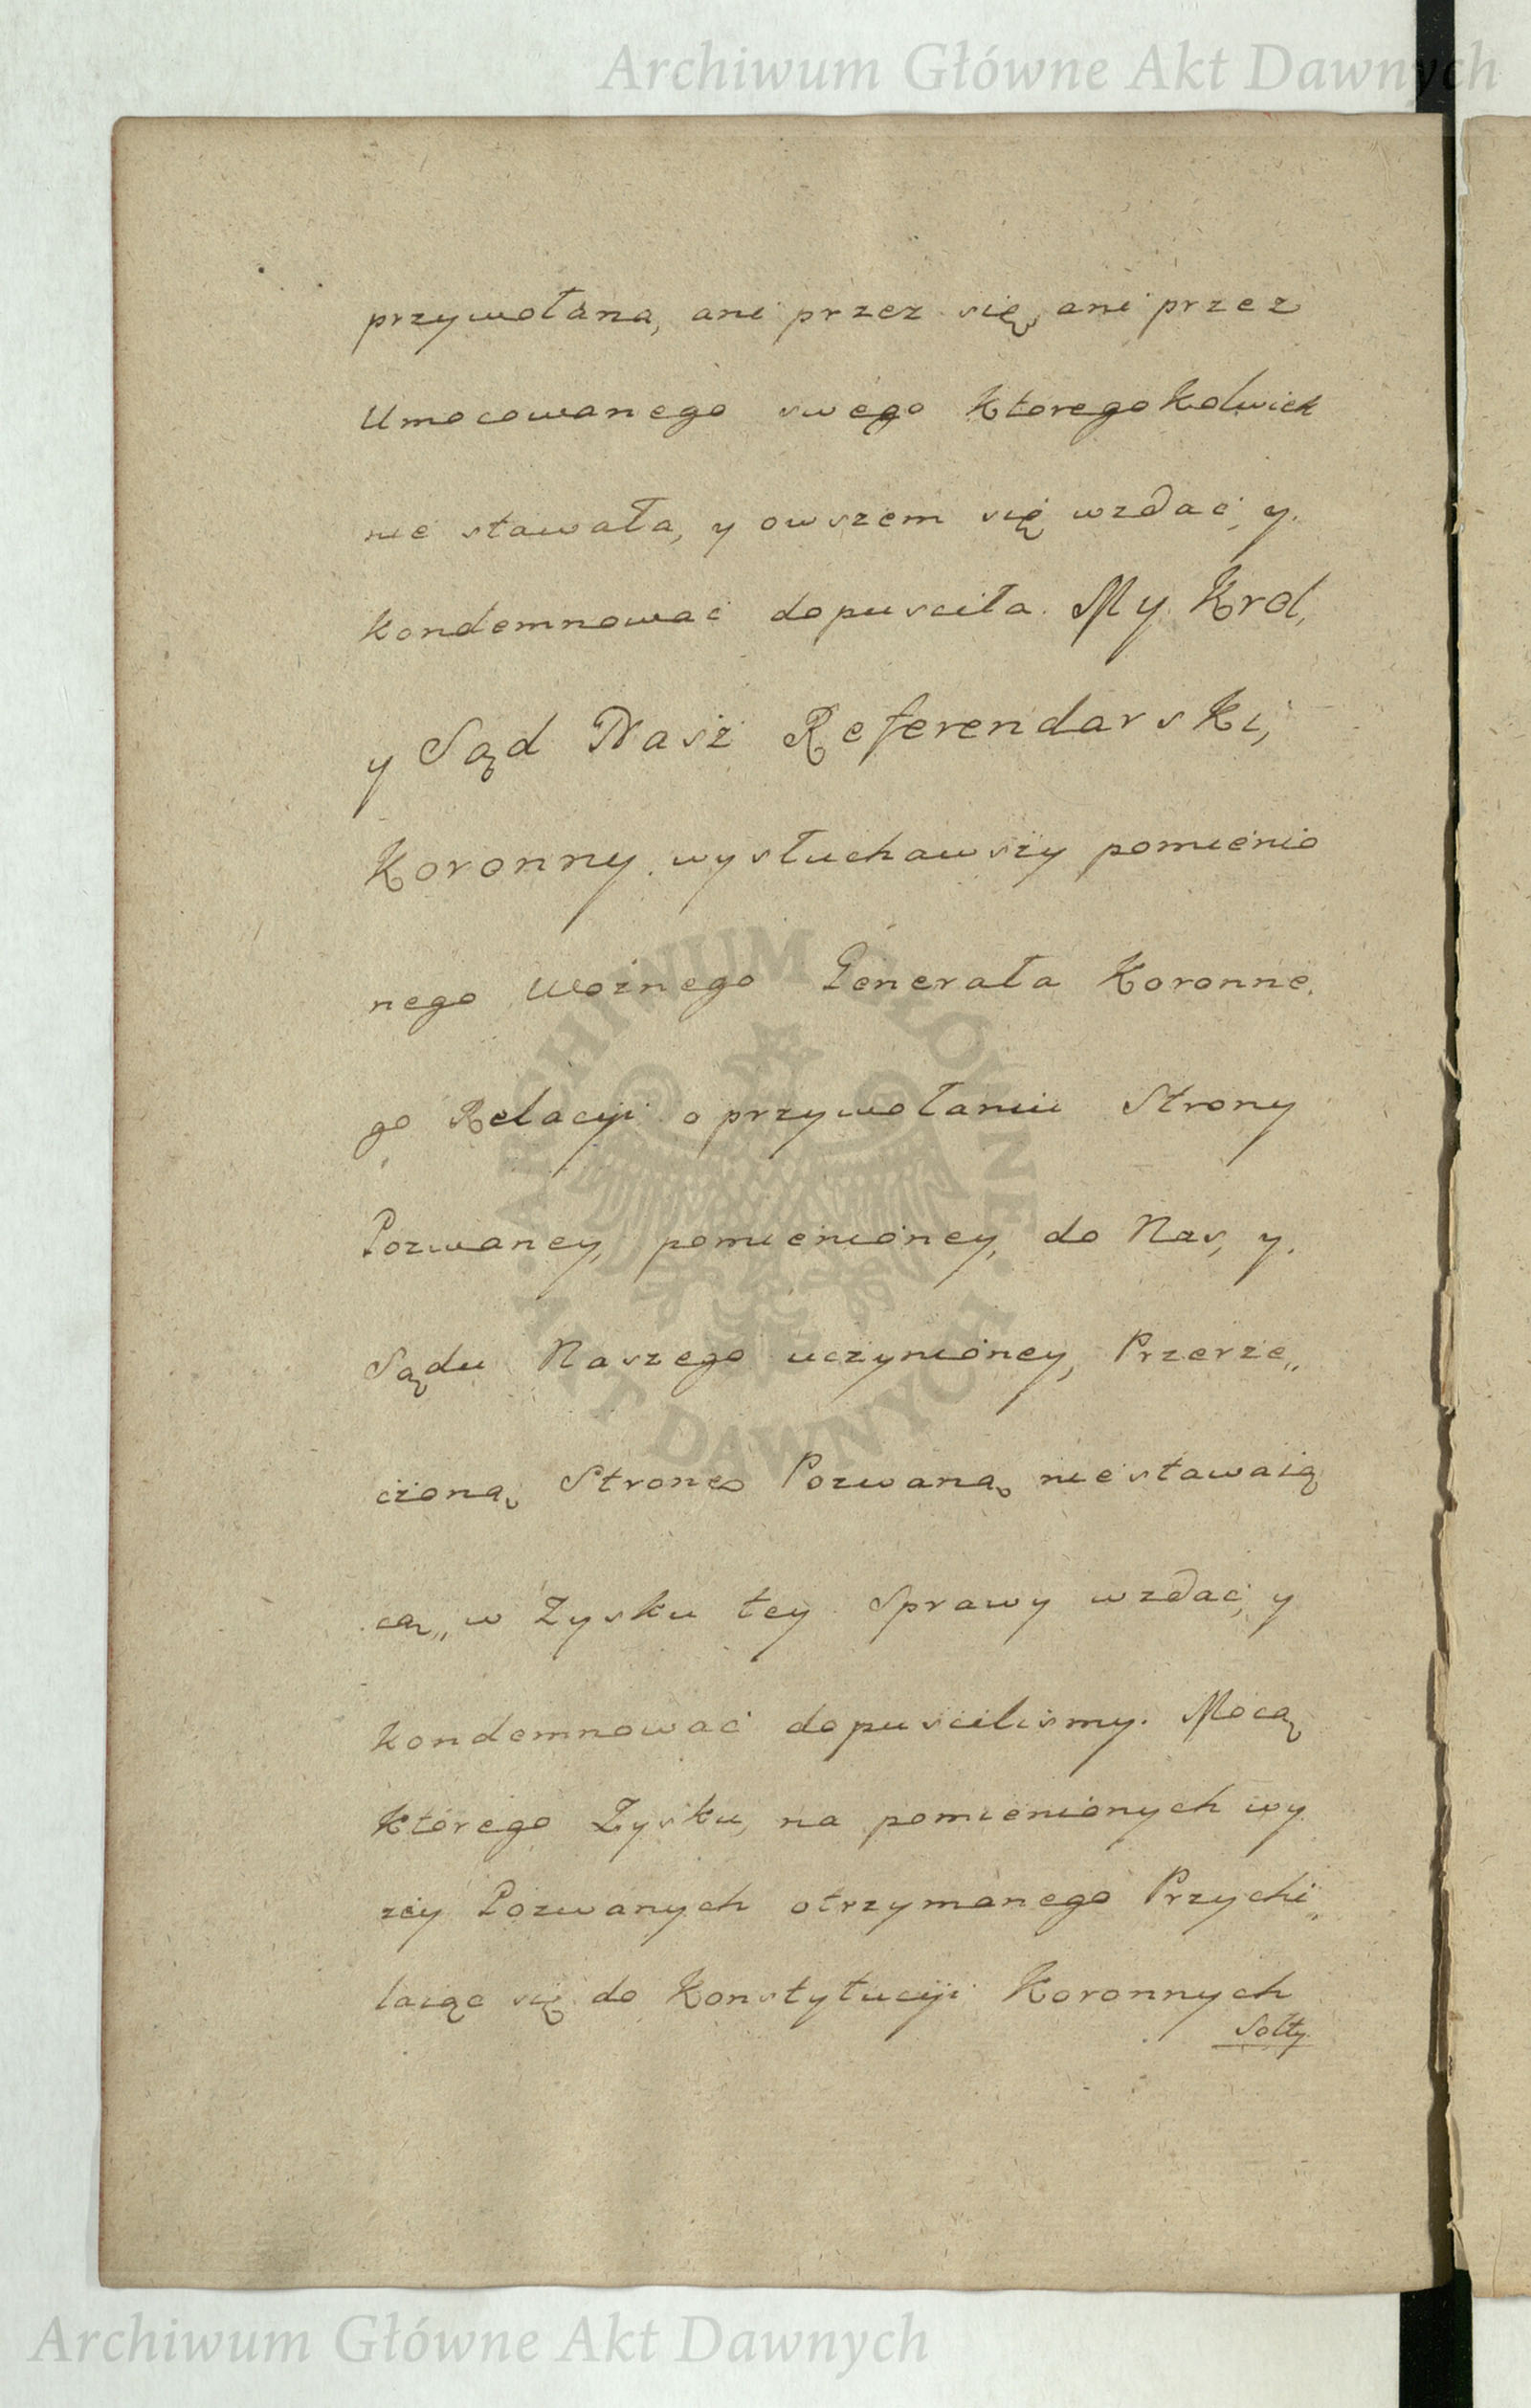 Archiwum Główne Akt Dawnych
przywołana, ani przez się, ani przez
Umocowanego swego Ktorego Kolwiek
nie stawała, y owszem się wzdać, y.
kondemnować dopusciła. My Krol,
y Sąd Nasż Referendarski,
Koronny wysłuchawszy pomienio
nego Woźnego Generała Koronne.
go Relacyi o przywołaniu Strony
Pozwaney, pomienioney, do Nas, y.
Sądu Naszego uczynioney, Przerze„
czoną, Stronę Pozwaną, nie stawaią
cą„ w Zysku tey Sprawy wzdać, y
kondemnować dopuscilismy. Mocą
którego Zysku, na pomienionych wy
zey Pozwanych otrzymanego Przychi„
laiąc się do Konstytucyi Koronnych
Solty.
ARCHIWUM GŁÓWNE · AKT DAWNYCH ·
Archiwum Główne Akt Dawnych